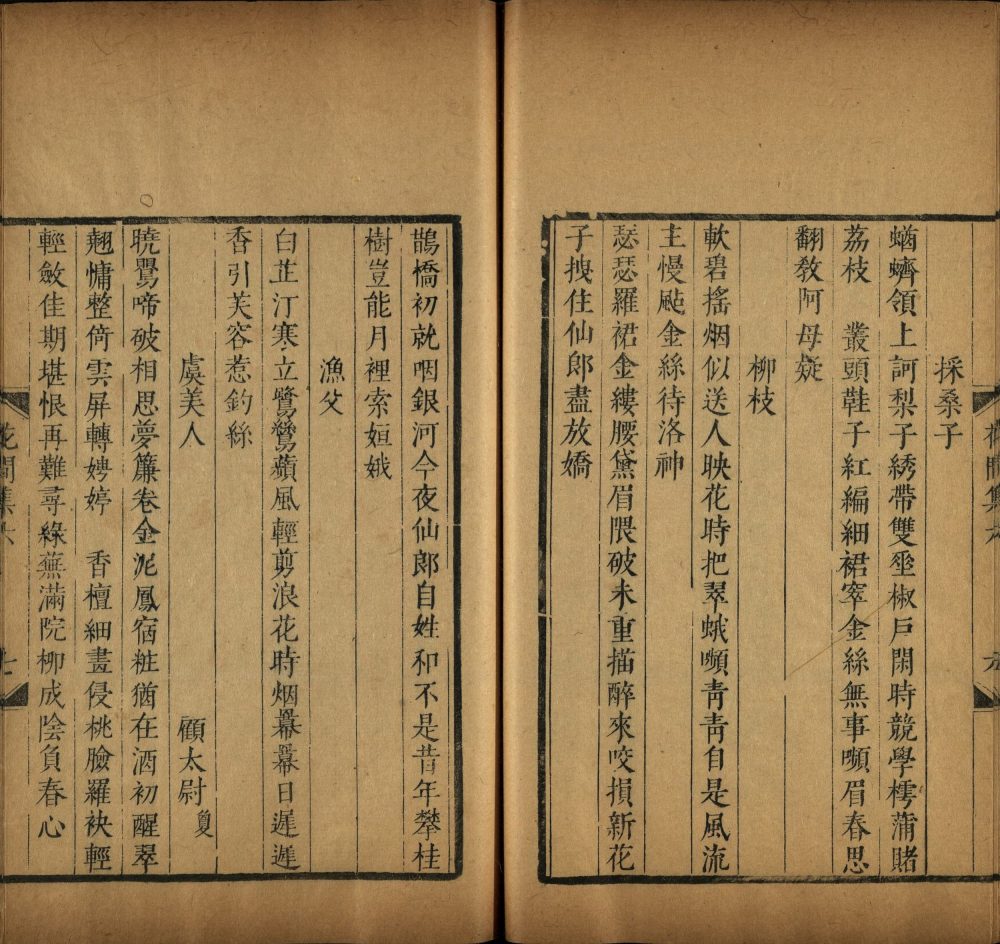 採桑子
蝤蠐領上訶梨子綉帶雙垂椒戶閑時競學樗蒲賭
荔枝　叢頭鞋子紅編細裙窣金絲無事嚬眉春思
翻敎阿母疑
柳枝
軟碧搖烟似送人映花時把翠蛾嚬靑靑自是風流
主慢颭金絲待洛神
瑟瑟羅裙金縷腰黛眉隈破未重描醉來咬損新花
子拽住仙郎盡放嬌
鵲橋初就咽銀河今夜仙郎自姓和不是昔年攀桂
樹豈能月裡索姮娥
漁父
白芷汀寒立鷺鷥蘋風輕剪浪花時烟冪冪日遲遲
香引芙容惹釣絲
虞美人
顧太尉夐
曉鸎啼破相思夢簾卷金泥鳳宿粧猶在酒初醒翠
翹慵整倚雲屏轉娉婷　香檀細畫侵桃臉羅袂輕
輕斂佳期堪恨再難尋綠蕪滿院柳成陰負春心
花間集六
七